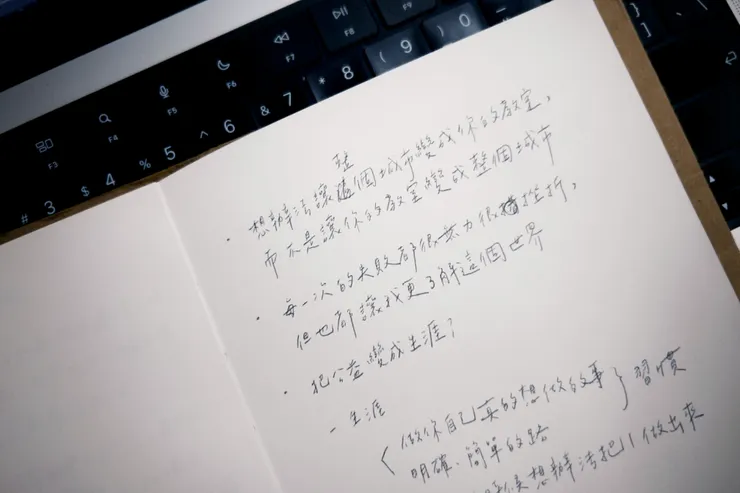 F3
F4
F5
F6
F7
F8
F9
# 3
$ 4
% 5
^ 6
& 7
* 8
( 9
) 0
整
• 想辦法讓個城市變成你的教室,
而不是讓你的教室變成整個城市
• 每一次的失敗都很無力很挫折,
但也都讓我更了解這個世界
• 把公益變成生涯?
- 生涯
做你自己真的想做的事 } 習慣
明確、簡單的路
時候想辦法把 做出來